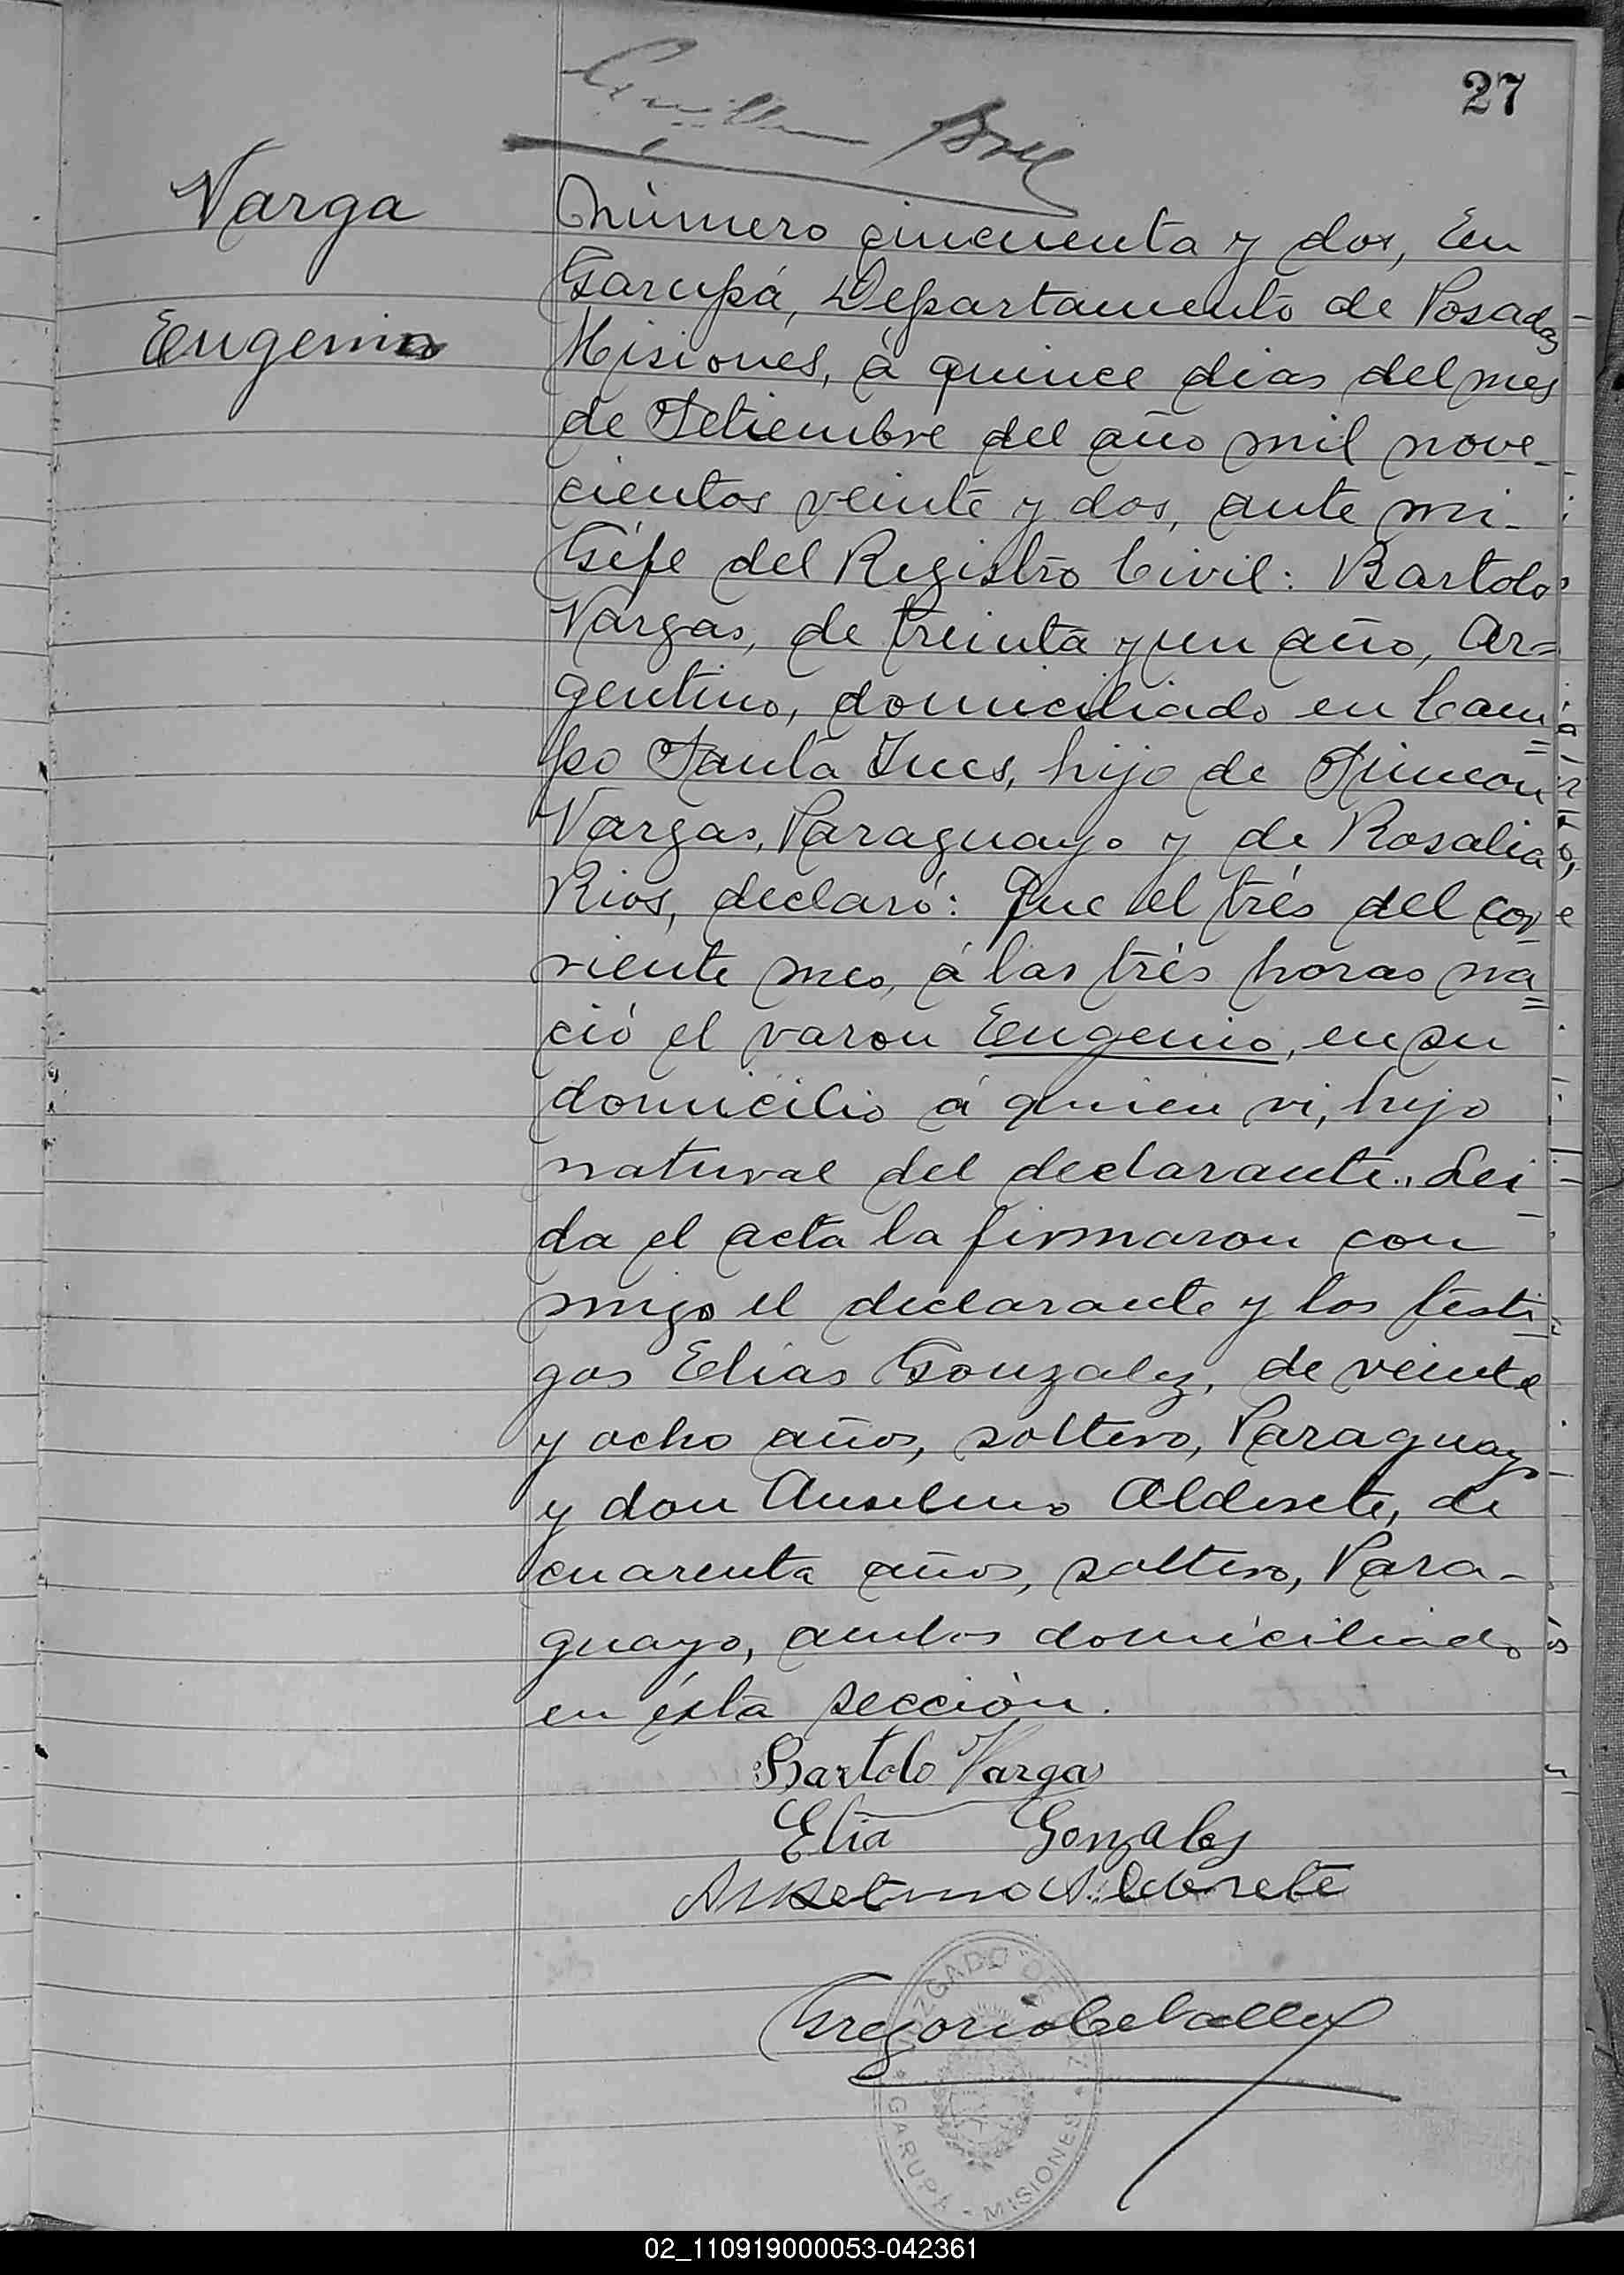 27
Varga
Eugenio
Número cincuenta y dos, En
Garupá, Departamento de Posadas
Misiones, á quince dias del mes
de Setiembre del año mil nove-
cientos veinte y dos, ante mi
Géfe del Registro Civil: Bartolo
Vargas, de treinta y un año, Ar=
gentino, domiciliado en Cam=
po Santa Ines, hijo de Simeon
Vargas, Paraguayo y de Rosalia
Rios, declaró: Que el trés del cor-
riente mes, á las trés horas na=
ció el varon Eugenio, en su
domicilio á quien vi, hijo
natural del declarante. Lei-
da el acta la firmaron con
migo el declarante y los testi-
gos Elias Gonzalez, de veinte
y ocho años, soltero, Paraguayo
y don Anselmo Alderete, de
cuarenta años, soltero, Para-
guayo, ambos domiciliado
en ésta sección.
Bartolo Vargas
Elia Gonzales
Anselmo Alderete
Gregorio Ceballos
JUZGADO DE PAZ
GARUPÁ - MISIONES
02_110919000053-042361